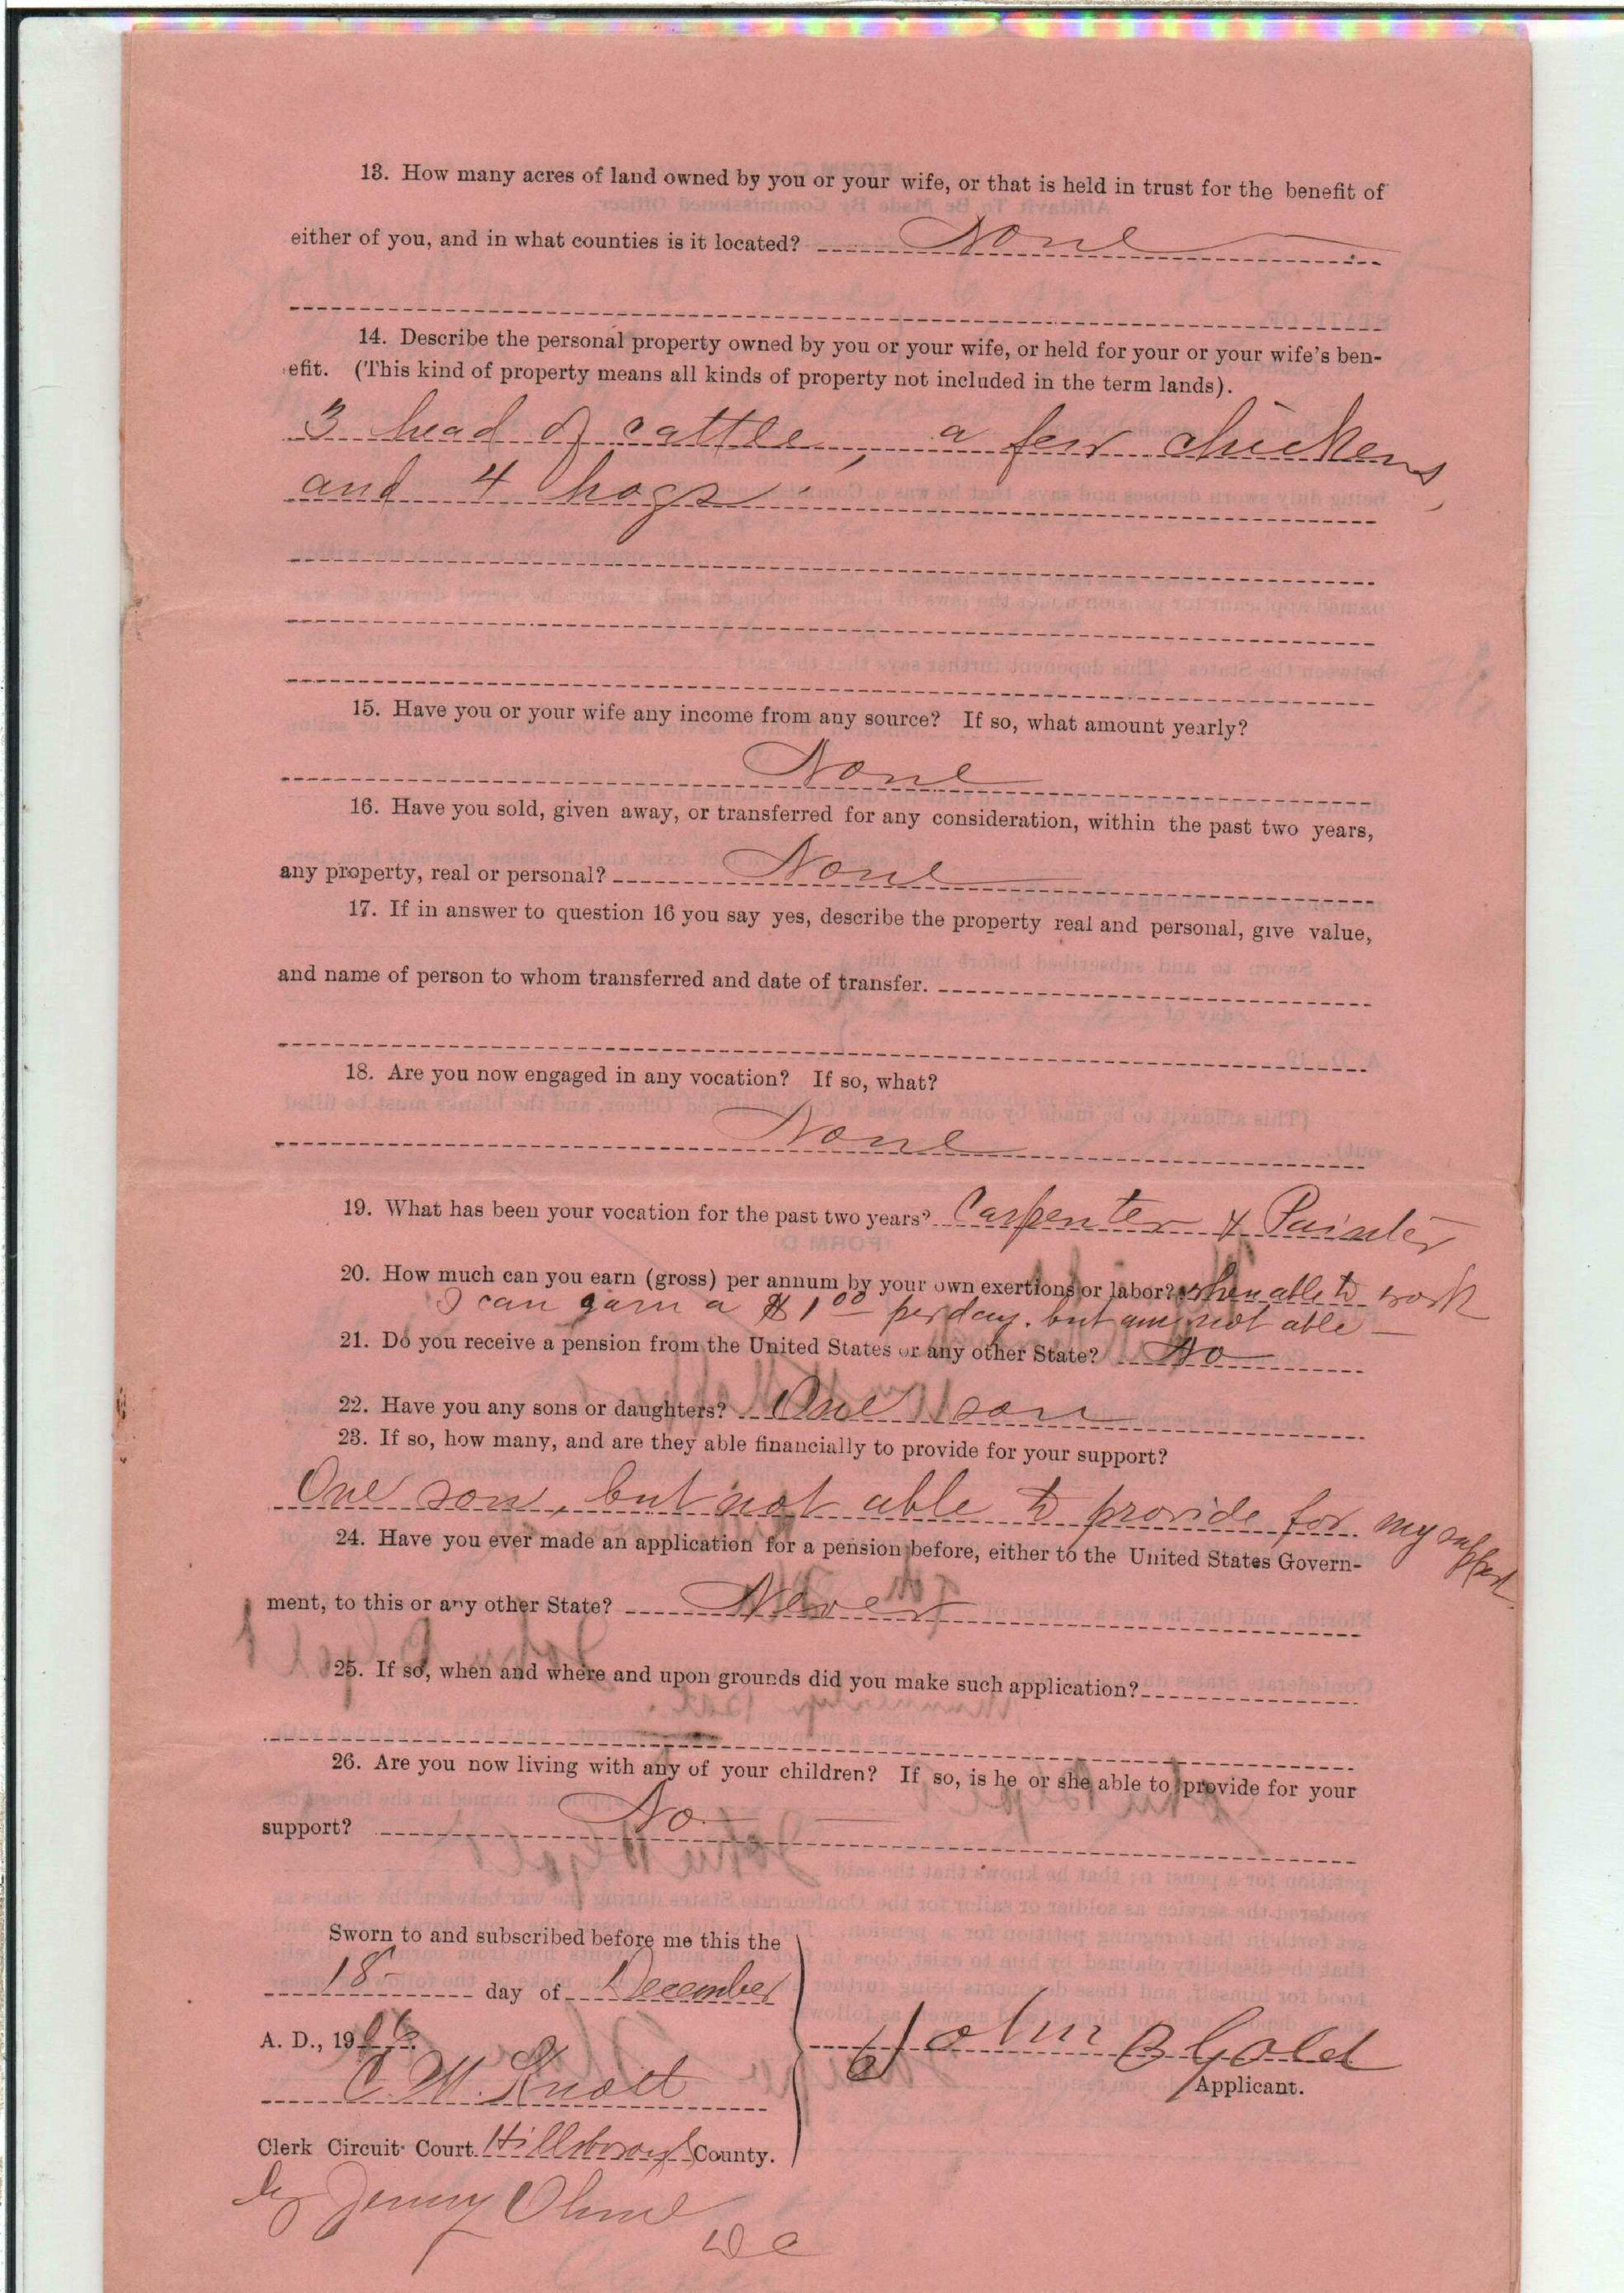 13. How many acres of land owned by you or your wife, or that is held in trust for the benefit of
either of you, and in what counties is it located? None
14. Describe the personal property owned by you or your wife, or held for your or your wife's ben-
efit. (This kind of property means all kinds of property not included in the term lands).
3 head of cattle, a few chickens,
and 4 hogs
15. Have you or your wife any income from any source? If so, what amount yearly?
None
16. Have you sold, given away, or transferred for any consideration, within the past two years,
any property, real or personal? None
17. If in answer to question 16 you say yes, describe the property real and personal, give value,
and name of person to whom transferred and date of transfer.
18. Are you now engaged in any vocation? If so, what?
None
19. What has been your vocation for the past two years? Carpenter & Painter
20. How much can you earn (gross) per annum by your own exertions or labor? When able to work
I can earn a $1.00 per day. but am not able
21. Do you receive a pension from the United States or any other State? No
22. Have you any sons or daughters? One son
23. If so, how many, and are they able financially to provide for your support?
One son, but not able to provide for my support
24. Have you ever made an application for a pension before, either to the United States Govern-
ment, to this or any other State? Never
25. If so, when and where and upon grounds did you make such application?
26. Are you now living with any of your children? If so, is he or she able to provide for your
support? No
Sworn to and subscribed before me this the
18 day of December
A. D., 19
John B Gold
C. M. Knott
Applicant.
Clerk Circuit Court Hillsboro County.
by
DC